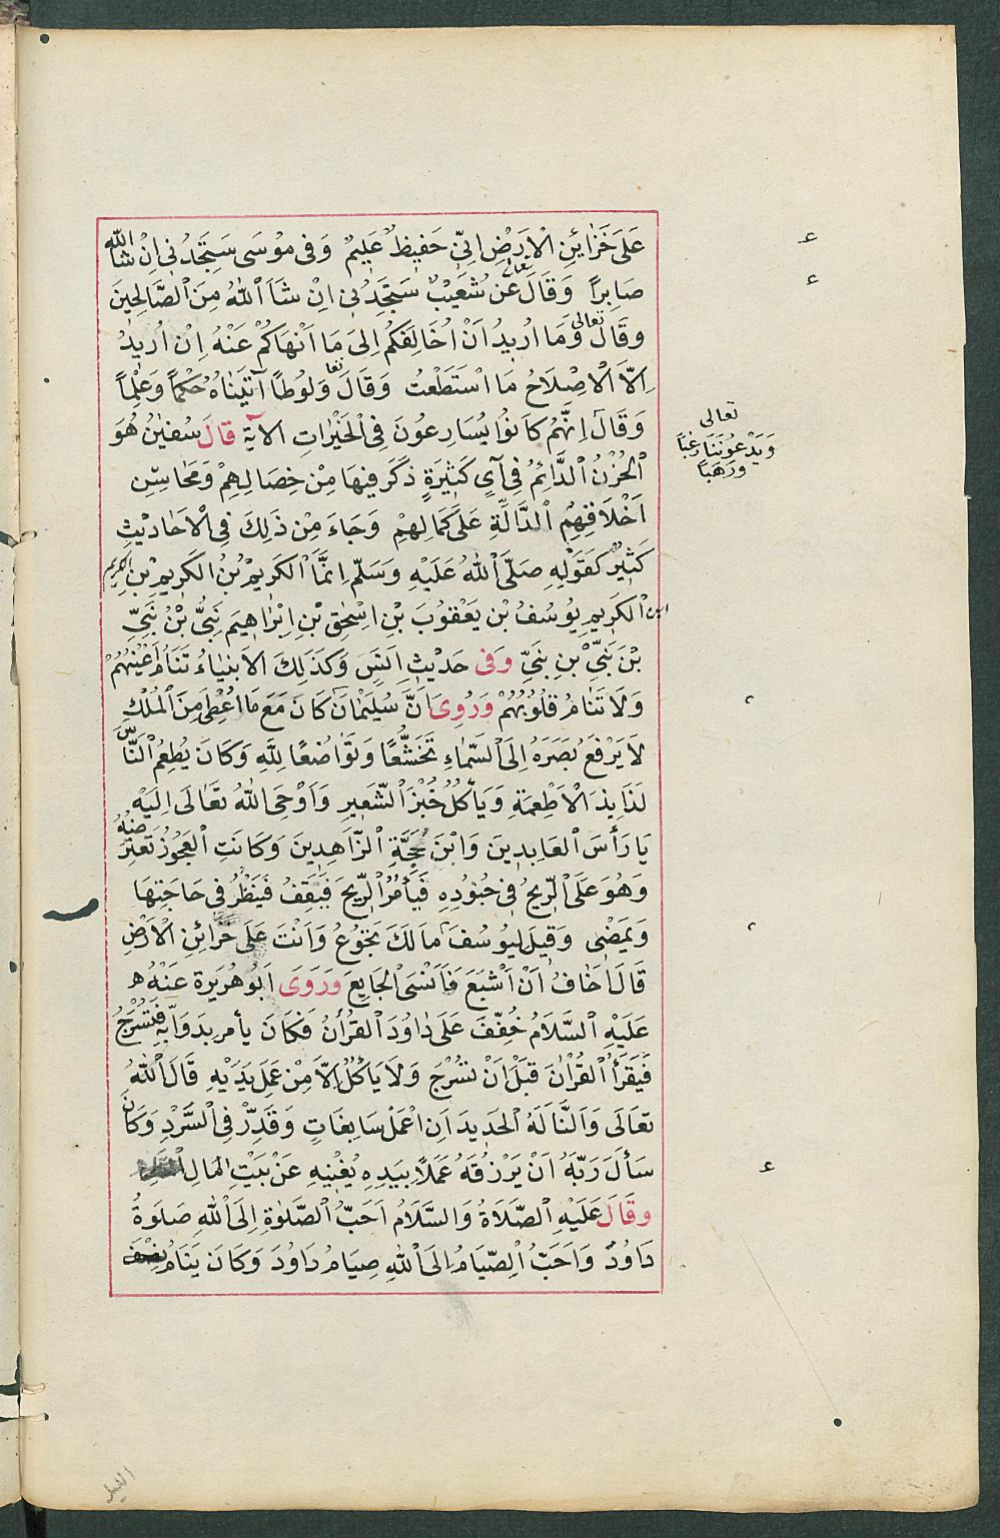 عَلَى خَزَائِنِ الْاَرْضِ اِنِّي حَفِيظٌ عَلِيمٌ وَفِى مُوسَى سَتَجِدُنِى اِنْ شَاءَ اللّٰهُ
صَابِراً وَقَالَ تعالى عَن شُعَيْبٌ سَتَجِدُنِى اِنْ شَاَ اللّٰهُ مِنَ الصَّالِحِينَ
وَقَالَ تعالى وَمَا اُرِيدُ اَنْ اُخَالِفَكُمْ اِلىَ مَا اَنْهَاكُمْ عَنْهُ اِنْ اُرِيدُ
اِلاَّ الْاِصْلَاحَ مَا اسْتَطَعْتُ وَقَالَ تعا وَلُوطاً آتَيْنَاهُ حُكْماً وَعِلْماً
وَقَالَ اِنَّهُمْ كَانُوا يُسَارِعُونَ فِى الْخَيْرَاتِ الآيَةَ قَالَ سُفيٰنُ هُوَ
تعالى
وَيَدْعُونَنَا رَغَباً
وَرَهَباً
الْحُزْنُ الدَّائِمُ فِى آيٍ كَثِيرَةٍ ذَكَرَ فِيهَا مِنْ خِصَالِهِمْ وَمَحَاسِنِ
اَخْلَاقِهِمُ الدَّالَّةِ عَلَى كَمَالِهِمْ وَجَاءَ مِنْ ذَلِكَ فِى الْاَحَادِيْثِ
كَثِيرٌ كَقَوْلِهِ صَلَّى اللّٰهُ عَلَيْهِ وَسَلَّمَ اِنَّمَا الْكَرِيمُ بْنُ الْكَرِيمِ بْنِ الكريم
ابن الْكَرِيمِ يُوسُفُ بْنِ يَعْقُوبَ بْنِ اِسْحٰقَ بْنِ اِبْرَاهِيمَ نَبِىٌّ بْنُ نَبِىِّ
بْنِ نَبِىٍّ بْنِ نَبِىٍّ وَفِى حَدِيْثِ اَنَسٍ وَكَذَلِكَ الْاَنْبِيَاءُ تَنَامُ اَعْيُنُهُمْ
وَلَا تَنَامُ قُلُوبُهُمْ وَرُوِىَ اَنَّ سُلَيْمٰنَ كَانَ مَعَ مَا اُعْطِىَ مِنَ الْمُلْكِ
لَا يَرْفَعُ بَصَرَهُ اِلَى السَّمَاءِ تَخَشُّعًا وَتَوَاضُعًا لِلّٰهِ وَكَانَ يُطْعِمُ النَّاسَ
لَذَايِذَ الْاَطْعِمَةِ وَيَأْكُلُ خُبْزَ الشَّعِيرِ وَاَوْحَى اللّٰهُ تَعَالَى اِلَيْهِ
يَا رَأْسَ الْعَابِدِينَ وَابْنَ مَحَجَّةِ الزَّاهِدِينَ وَكَانَتِ الْعَجُوزُ تَعْتَرِضُهُ
وَهُوَ عَلَى الرِّيحُ فِى جُنُودِهِ فَيَأْمُرُ الرِّيحَ فَيَقِفُ فَيَنْظُرُ فِى حَاجَتِهَا
وَيَمْضِى وَقِيلَ لِيُوسُفَ مَا لَكَ تَجُوعُ وَاَنْتَ عَلَى خَزَائِنِ الْاَرْضِ
قَالَ اَخَافُ اَنْ اَشْبَعَ فَاَنْسَى الْجَايِعَ وَرَوَى اَبُو هُرَيرة عَنْهُ
عَلَيْهِ السَّلَامُ خُفِّفَ عَلَى دٰاوُدَ الْقُرْآنُ فَكَانَ يأمر بِدَوَابِّهِ فَتُسْرَجُ
فَيَقْرَأُ الْقُرْاٰنَ قَبْلَ اَنْ تُسْرَجَ وَلَا يَاْكُلُ اِلاَّ مِنْ عَمَلِ يَدَيْهِ قَالَ اللّٰهُ
تَعَالَى وَاَلَنَّا لَهُ الْحَدِيدَ اَنِ اعْمَلْ سَابِغَاتٍ وَقَدِّرْ فِى السَّرْدِ وَكَانَ
سَأَلَ رَبَّهُ اَنْ يَرْزُقَهُ عَمَلًا بِيَدِهِ يُغْنِيهِ عَنْ بَيْتِ الْمَالِ
وَقَالَ عَلَيْهِ الصَّلَاةُ وَالسَّلَامُ اَحَبُّ الصَّلَوٰةِ اِلَى اللّٰهِ صَلَوةُ
دَاوُدَ وَاَحَبُّ الصِّيَامُ اِلَى اللّٰهِ صِيَامُ دَاوُدَ وَكَانَ يَنَامُ نِصْفَ
الليل